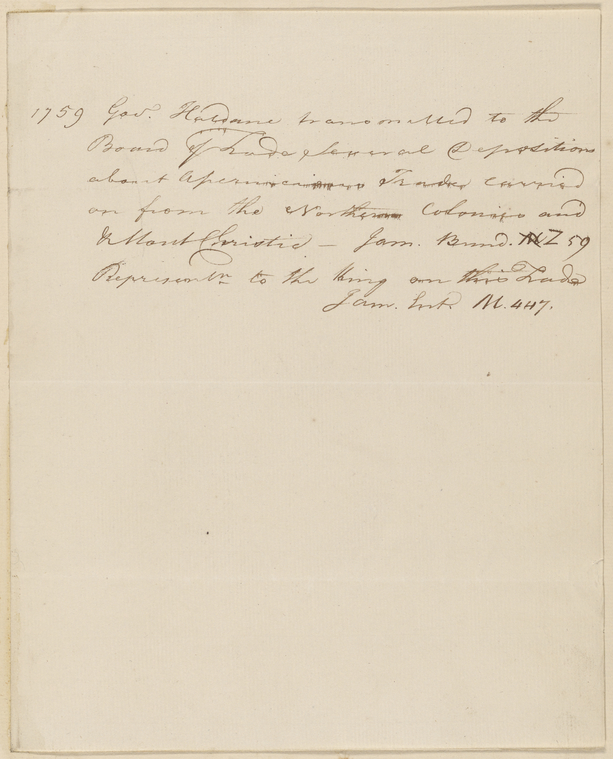 1759 Gov.r Haldane transmitted to the
Board of Trade several Depositions
about a pernicious Trade carried
on from the Northern Colonies and
Mont Christie — Jam. Bund. Z 59
Represent.n to the King on this Trade
Jam. Ent. M. 447.